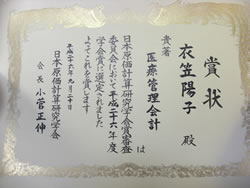 賞状
衣笠陽子 殿
貴著
医療管理会計 は
日本原価計算研究学会学会賞審査
委員会において平成二十六年度
学会賞に選定されました
よってこれを賞します
平成二十六年九月二十日
日本原価計算研究学会
会長 小菅正伸